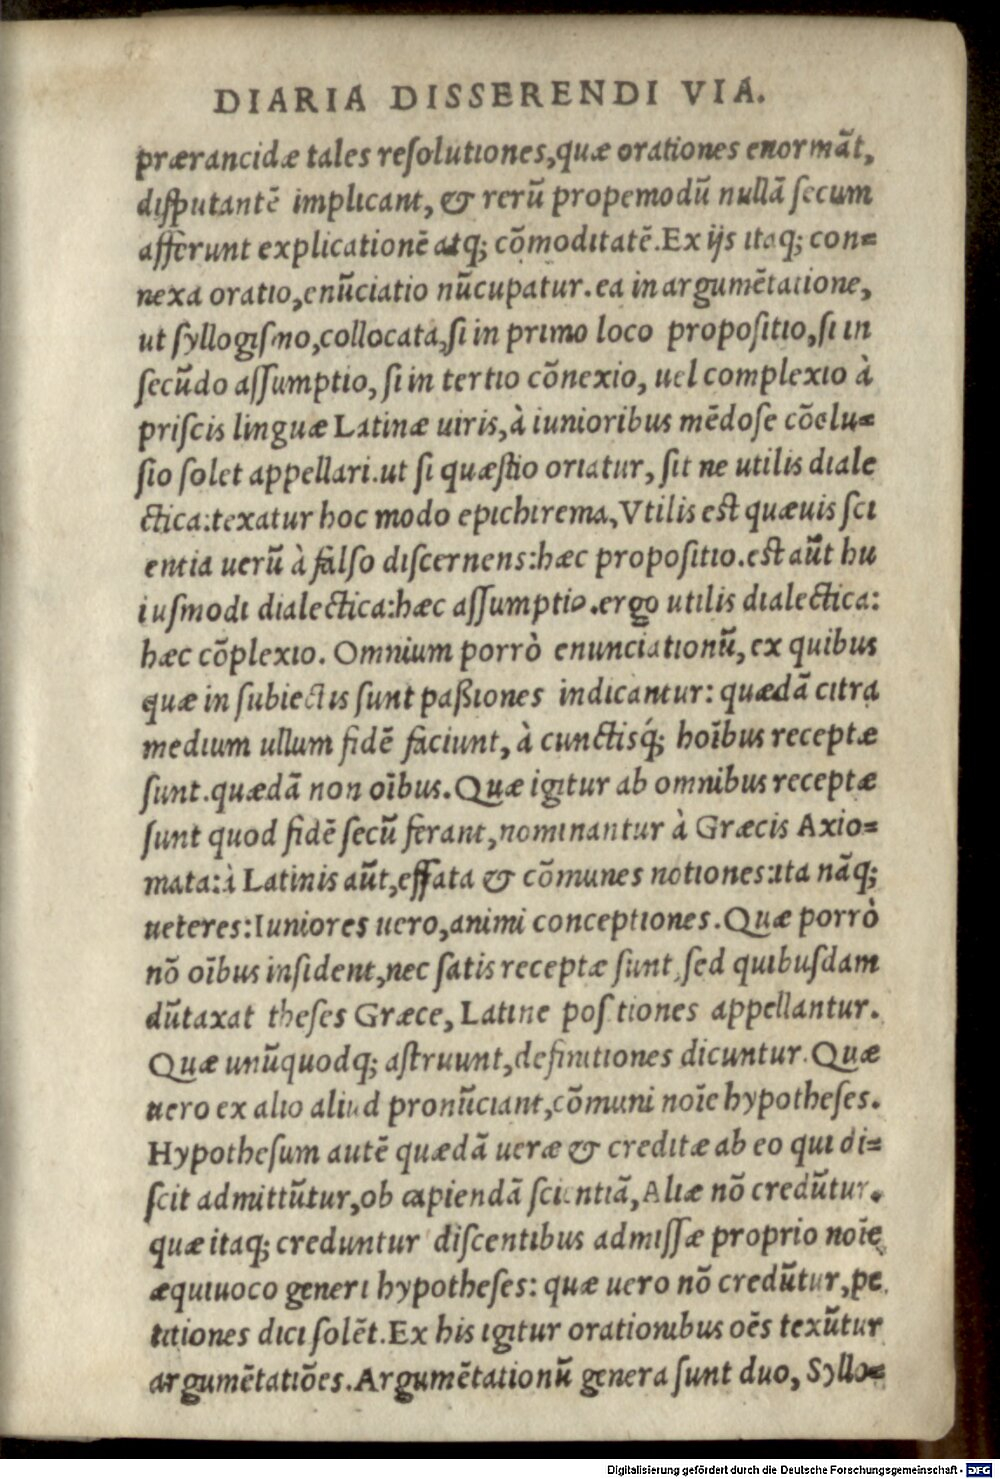 DIARIA DISSERENDI VIA.
prærancidæ tales reſolutiones,quæ orationes enormāt,
diſputantē implicant, & rerū propemodū nullā ſecum
afferunt explicationē atq; cōmoditatē.Ex ijs itaq; con=
nexa oratio,enūciatio nūcupatur.ea in argumētatione,
ut ſyllogiſmo,collocata,ſi in primo loco propoſitio,ſi in
ſecūdo aſſumptio, ſi in tertio cōnexio, uel complexio à
priſcis linguæ Latinæ uiris,à iunioribus mēdoſe cōclu=
ſio ſolet appellari.ut ſi quæſtio oriatur, ſit ne utilis diale
ctica:texatur hoc modo epichirema,Vtilis eſt quæuis ſci
entia uerū à falſo diſcernens:hæc propoſitio.eſt aūt hu
iuſmodi dialectica:hæc aſſumptio.ergo utilis dialectica:
hæc cōplexio. Omnium porrò enunciationū, ex quibus
quæ in ſubiectis ſunt paßiones indicantur: quædā citra
medium ullum fidē faciunt, à cunctisq́; hoībus receptæ
ſunt.quædā non oībus. Quæ igitur ab omnibus receptæ
ſunt quod fidē ſecū ferant,nominantur à Græcis Axio=
mata:à Latinis aūt,effata & cōmunes notiones:ita nāq;
ueteres:Iuniores uero,animi conceptiones. Quæ porrò
nō oībus inſident,nec ſatis receptæ ſunt,ſed quibuſdam
dūtaxat theſes Græce, Latine poſitiones appellantur.
Quæ unūquodq; aſtruunt,definitiones dicuntur.Quæ
uero ex alio aliud pronūciant,cōmuni noīe hypotheſes.
Hypotheſum autē quædā ueræ & creditæ ab eo qui di=
ſcit admittūtur,ob capiendā ſcientiā, Aliæ nō credūtur.
quæ itaq; creduntur diſcentibus admiſſæ proprio noīe
æquiuoco generi hypotheſes: quæ uero nō credūtur,pe
titiones dici ſolēt.Ex his igitur orationibus oēs texūtur
argumētatiōes.Argumētationū genera ſunt duo, Syllo=
Digitalisierung gefördert durch die Deutsche Forschungsgemeinschaft - DFG